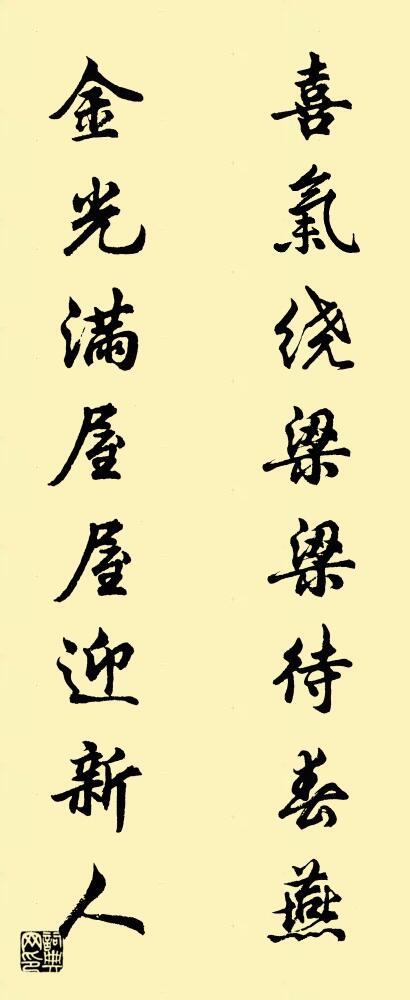 喜氣绕梁梁待春燕
金光滿屋屋迎新人
詞典网印